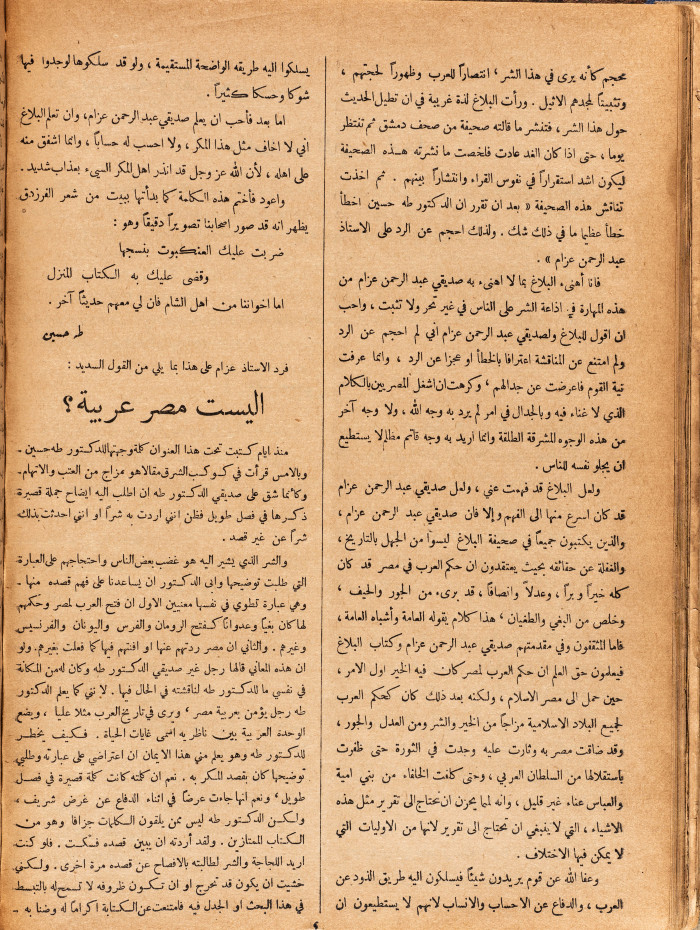 محجم كأنه يرى في هذا الشر ‘ انتصاراً للعرب وظهوراً لحجتهم ،
وتثبيتاً لمجدهم الاثيل . ورأت البلاغ لذة غريبة في ان تطيل الحديث
حول هذا الشر ، فتنشر ما قالته صحيفة من صحف دمشق ثم تنتظر
يوما ، حتى اذا كان الغد عادت فلخصت ما نشرته هـذه الصحيفة
ليكون اشد استقراراً في نفوس القراء وانتشاراً بينهم . ثم اخذت
تناقش هذه الصحيفة « بعد ان تقرر ان الدكتور طه حسين اخطأ
خطأ عظيما ما في ذلك شك . ولذلك احجم عن الرد على الاستاذ
عبد الرحمن عزام » .
فانا أهنىء البلاغ بما لا اهنىء به صديقي عبد الرحمن عزام من
هذه المهارة في اذاعة الشر على الناس في غير تحر ولا تثبت ، واحب
ان اقول للبلاغ ولصديقي عبد الرحمن عزام اني لم احجم عن الرد
ولم امتنع عن المناقشة اعترافا بالخطأ او عجزا عن الرد ، وانما عرفت
نية القوم فاعرضت عن جدالهم ‘ وكرهت ان اشغل المصريين بالكلام
الذي لا غناء فيه وبالجدال في امر لم يرد به وجه الله ، ولا وجه آخر
من هذه الوجوه المشرقة الطلقة وانما اريد به وجه قاتم مظلم لا يستطيع
ان يجلو نفسه للناس .
ولعل البلاغ قد فهمت عني ، ولعل صديقي عبد الرحمن عزام
قد كان اسرع منها الى الفهم وإلا فان صديقي عبد الرحمن عزام ،
والذين يكتبون جميعاً في صحيفة البلاغ ليسوا من الجهل بالتاريخ ،
والغفلة عن حقائقه بحيث يعتقدون ان حكم العرب في مصر قد كان
كله خيراً وبراً ، وعدلاً وانصافاً ، قد برىء من الجور والحيف ‘
وخلص من البغي والطغيان ‘ هذا كلام يقوله العامة وأشباه العامة ،
فاما المثقفون وفي مقدمتهم صديقي عبد الرحمن عزام وكتاب البلاغ
فيعلمون حق العلم ان حكم العرب لمصر كان فيه الخير اول الامر ،
حين حمل الى مصر الاسلام ، ولكنه بعد ذلك كان كحكم العرب
لجميع البلاد الاسلامية مزاجاً من الخير والشر ومن العدل والجور ،
وقد ضاقت مصر به وثارت عليه وجدت في الثورة حتى ظفرت
باستقلالها من السلطان العربي ، وحتى كلفت الخلفاء من بني امية
والعباس عناء غير قليل ، وانه لمما يحزن ان نحتاج الى تقرير مثل هذه
الاشياء ، التي لا ينبغي ان تحتاج الى تقرير لانها من الاوليات التي
لا يمكن فيها الاختلاف .
وعفا الله عن قوم يريدون شيئاً فيسلكون اليه طريق الذود عن
العرب ، والدفاع عن الاحساب والانساب لانهم لا يستطيعون ان
يسلكوا اليه طريقه الواضحة المستقيمة ، ولو قد سلكوها لوجدوا فيها
شوكا وحسكا كثيراً .
اما بعد فأحب ان يعلم صديقي عبد الرحمن عزام، وان تعلم البلاغ
اني لا اخاف مثل هذا المكر ، ولا احسب له حساباً ، وانما اشفق منه
على اهله ، لأن الله عز وجل قد انذر اهل المكر السيىء بعذاب شديد .
واعود فأختم هذه الكلمة كما بدأتها ببيت من شعر الفرزدق
يظهر انه قد صور اصحابنا تصويراً دقيقاً وهو :
ضربت عليك العنكبوت بنسجها
وقضى عليك به الكتاب المنزل
اما اخواننا من اهل الشام فان لي معهم حديثاً آخر .
طه حسين
فرد الاستاذ عزام على هذا بما يلي من القول السديد :
اليست مصر عربية ؟
منذ ايام كتبت تحت هذا العنوان كلمة وجهتها للدكتور طه حسين .
وبالامس قرأت في كوكب الشرق مقالا هو مزاج من العتب والاتهام .
وكأنما شق على صديقي الدكتور طه ان اطلب اليه ايضاح جملة قصيرة
ذكرها في فصل طويل فظن انني اردت به شراً او انني احدثت بذلك
شراً عن غير قصد .
والشر الذي يشير اليه هو غضب بعض الناس واحتجاجهم على العبارة
التي طلبت توضيحها وابى الدكتور ان يساعدنا على فهم قصده منها .
وهي عبارة تطوي في نفسها معنيين الاول ان فتح العرب لمصر وحكمهم
لها كان بغياً وعدواناً كفتح الرومان والفرس واليونان والفرنسيس
وغيرهم . والثاني ان مصر ردتهم عنها او افنتهم فيها كما فعلت بغيرهم . ولو
ان هذه المعاني قالها رجل غير صديقي الدكتور طه وكان له من المكانة
في نفسي ما للدكتور طه لناقشته في الحال فيها . لأنني كما يعلم الدكتور
طه رجل يؤمن بعربية مصر ‘ ويرى في تاريخ العرب مثلا عليا ، ويضع
الوحدة العربية بين ناظر يه اسمى غايات الحياة . فكيف يخطر
للدكتور طه وهو يعلم مني هذا الايمان ان اعتراضي على عبارته وطلبي
توضيحها كان بقصد المكر به . نعم ان كلمته كانت كلمة قصيرة في فصل
طويل ‘ ونعم انها جاءت عرضاً في اثناء الدفاع عن غرض شريف ،
ولكن الدكتور طه ليس ممن يلقون الكلمات جزافا وهو من
الكتاب الممتازين . ولقد أردته ان يبين قصده فسكت . فلو كنت
اريد اللجاجة والشر لطالبته بالافصاح عن قصده مرة اخرى . ولكني
خشيت ان يكون قد تحرج او ان تكون ظروفه لا تسمح له بالتبسط
في هذا البحث او الجدل فيه فامتنعت عن الكتابة اكراما له وضنا به .